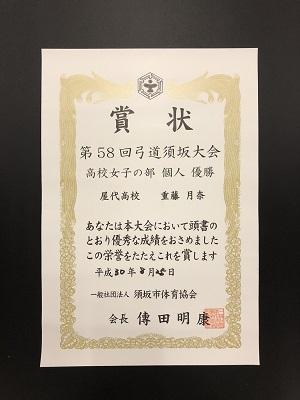 賞状
第58回弓道須坂大会
高校女子の部 個人 優勝
屋代高校 重藤 月奈
あなたは本大会において頭書の
とおり優秀な成績をおさめました
この栄誉をたたえこれを賞します
平成30年8月25日
一般社団法人 須坂市体育協会
会長 傳田明康